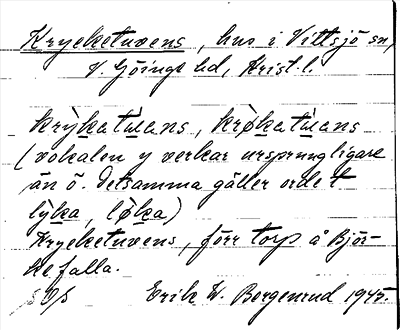 Kryeketuvens, hus i Vittsjö sn,
V. Göinge hd, Krist. l.
krỳkatùans, krø̀katùans
(vokalen y verkar ursprungligare
än ö. Detsamma gäller ordet
lỳka, lø̀ka)
Kryeketuvens, förr torp å Björ-
kefalla.
Erik W. Borgenrud 1945.